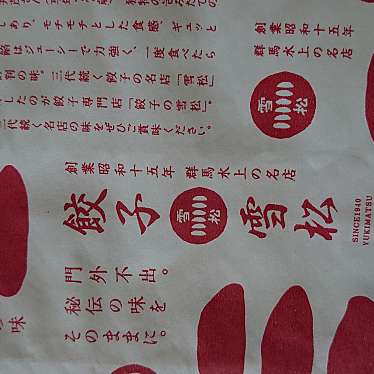 しあり、モチモチとした食感、ギュッと
餡はジューシーで力強く、一度食べたら
評判の味。三代続く餃子の名店「雪松」。
したのが餃子専門店「餃子の雪松」。
三代続く名店の味をぜひご賞味ください。
創業昭和十五年
群馬水上の名店
雪松
創業昭和十五年 群馬水上の名店
餃子 雪松 雪松
SINCE1940
YUKIMATSU
門外不出。
秘伝の味を
そのままに。
味